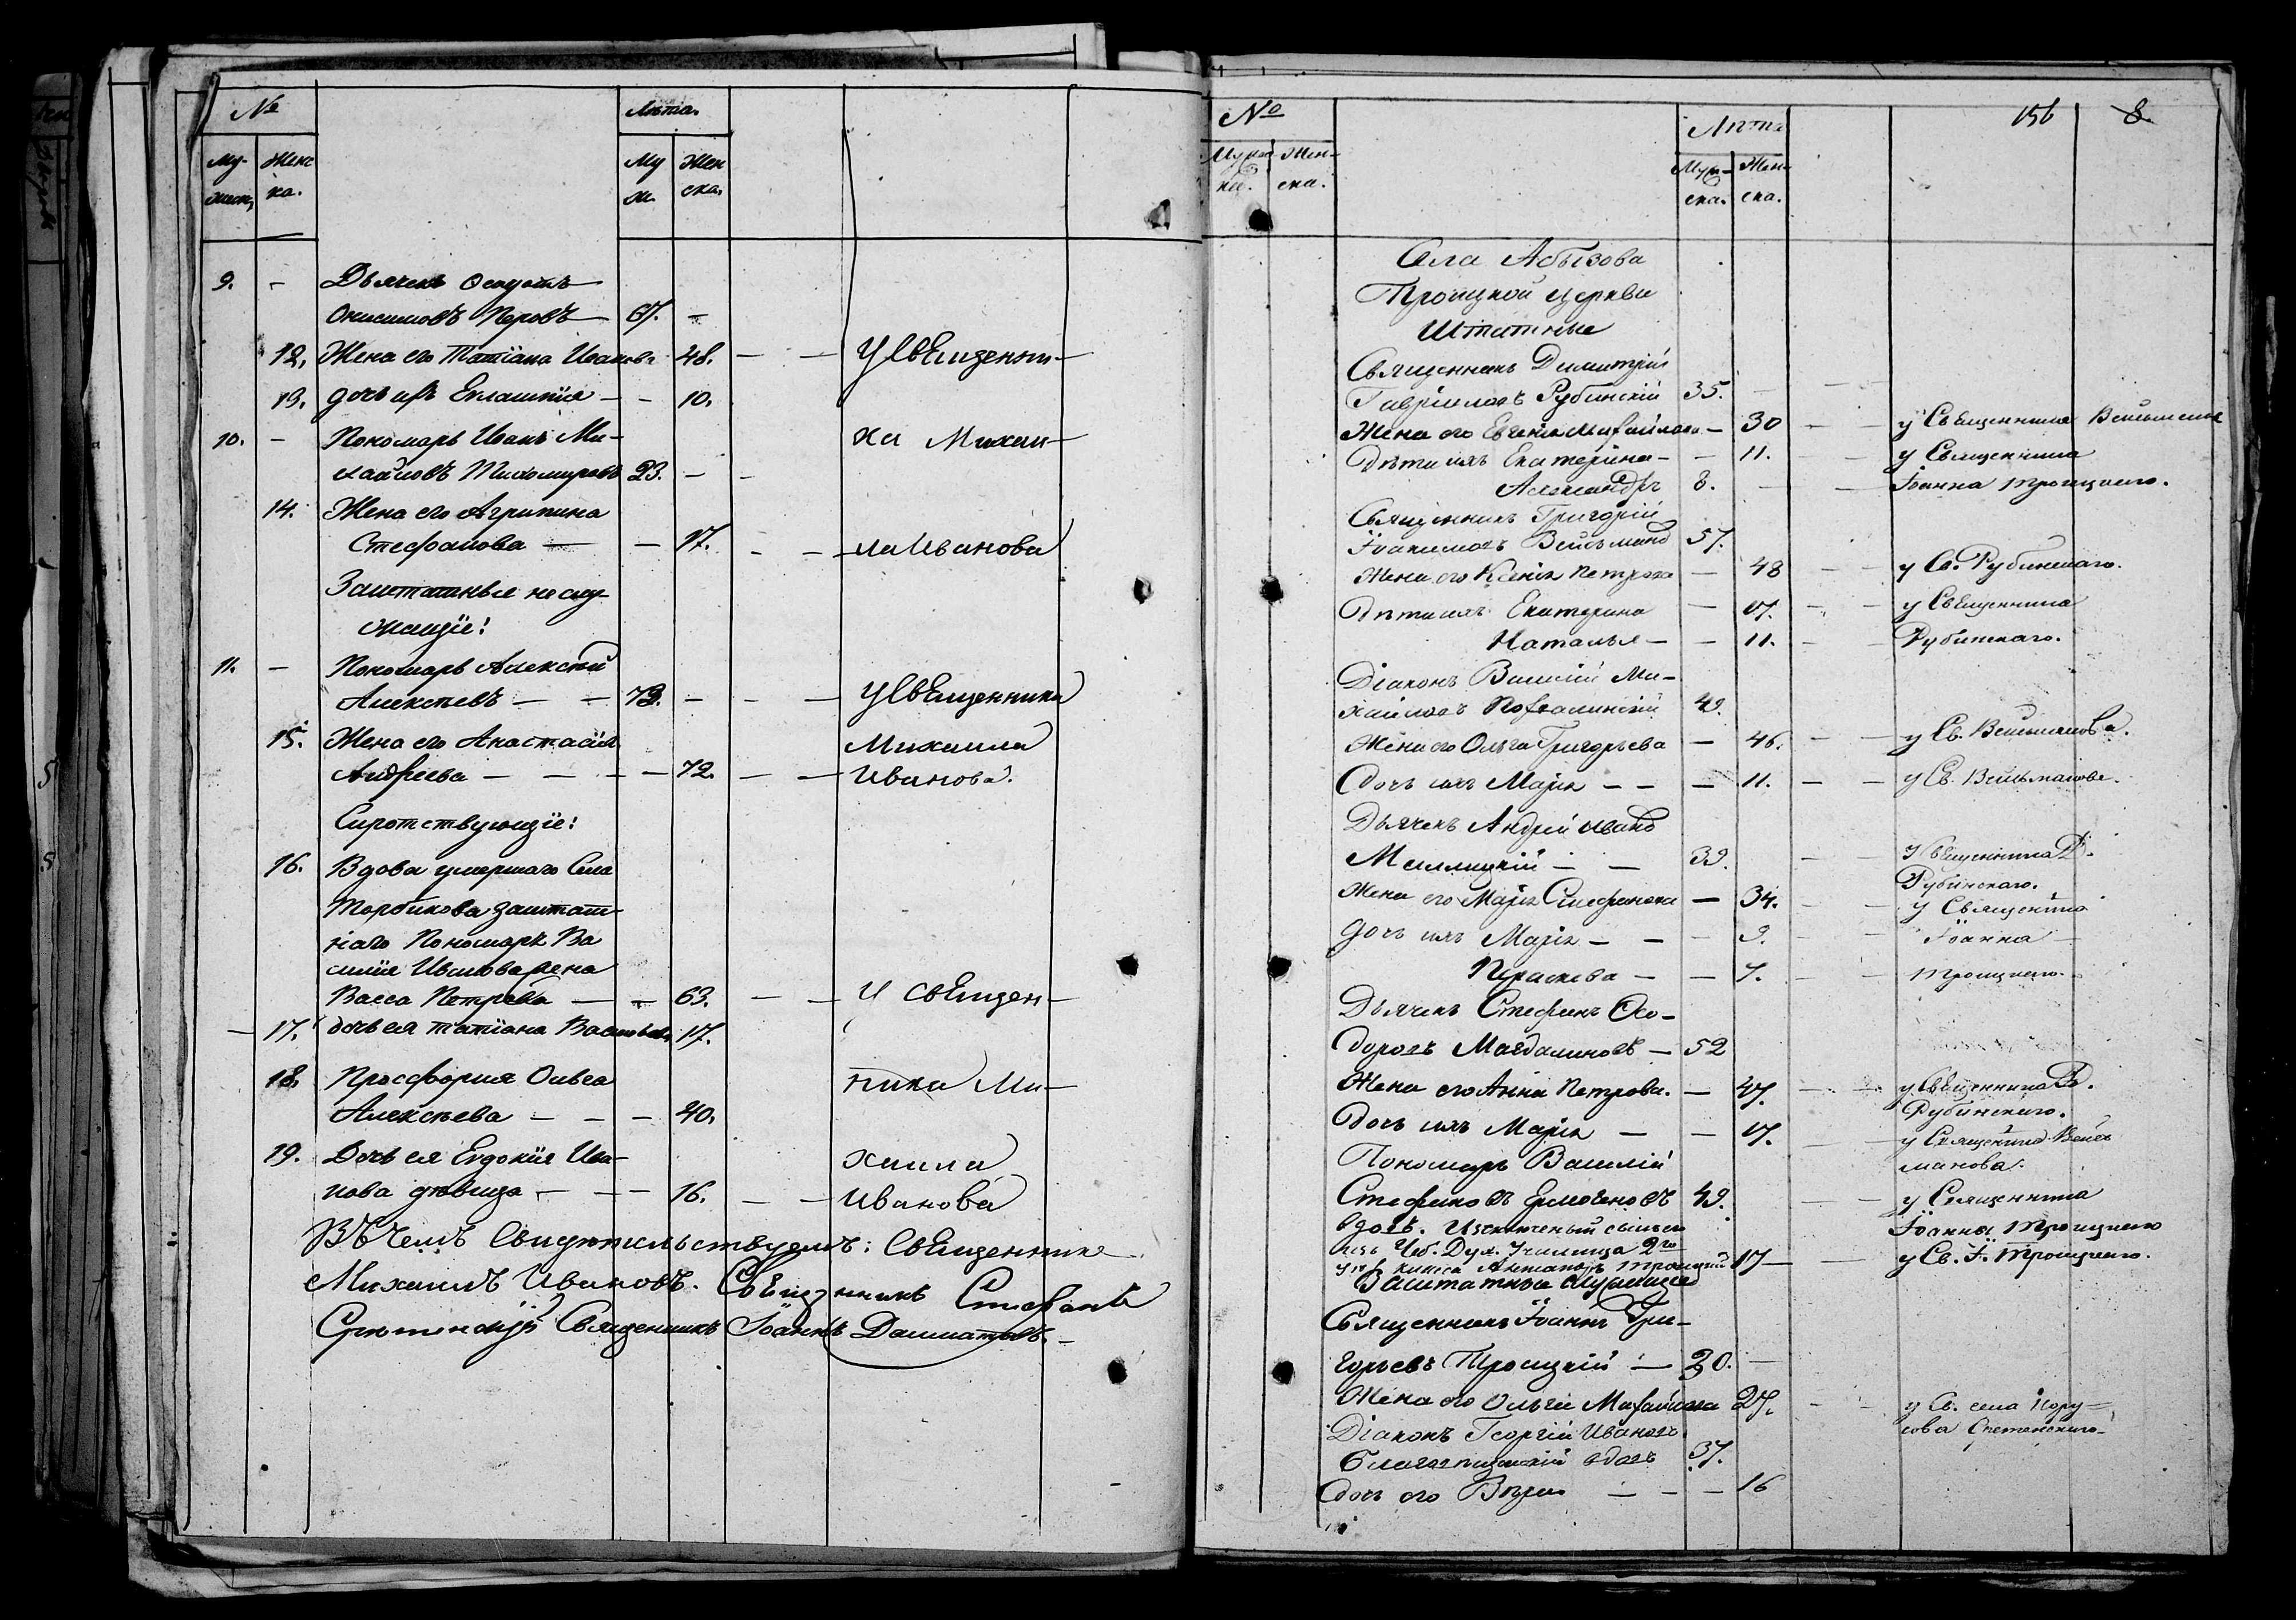 № Лѣта
Му- Женс Му Жен
жеск, ка. ж. ска.
9. - Дьячекъ
Онисимовъ Перовъ 67. -
12. Жена его Татіана Иванова 48. - - У Священни-
13. дочь ихъ - - 10.
10. - Пономарь Иванъ Ми- ка Михаи-
хайловъ Тихомировъ 23. - -
14. Жена его Агрипина
Стефанова - - 17. - - ла Иванова
Заштатные не слу-
жащіе:
11. - Пономарь Алексѣй
Алексѣевъ - - 73. - - - У Священника
15. Жена его Анастасія Михаила
Андреева - - - - 72. - - Иванова.
Сиротствующіе:
16. Вдова умершаго Села
заштат-
наго Пономаря Ва
силія жена
Васса Петрова - - 63. - - У священ-
- 17. дочь ея татіана Васильева 17.
18. Просфорня Ольга ника Ми-
Алексѣева - - - 40.
19. Дочь ея Евдокія Ива- хаила
нова дѣвица - - - 16. - - Иванова
Въ чемъ свидѣтельствуемъ: Священникъ
Михаилъ Ивановъ. Священникъ Стефанъ
Срѣтенскій Священникъ Іоаннъ Далматовъ. -
№ Лѣта 156 8.
Муже- Жен- Муж- Жен-
ска. ска. ска.
Села Абызова
Троицкой церкви
Штатные
Священникъ Димитрій
Гавріиловъ Рубинскій 35. -
Жена его Евгенія Михайлова - 30 - - у Священника
Дѣти ихъ Екатерина - - 11. - у Священника
Александръ 8. - - Іоанна Троицкаго.
Священникъ Григорій
Іоакимовъ 57.
Жена его Ксенія Петрова - 48 - - у Св. Рубинскаго.
Дѣти ихъ Екатерина - 17. - - у Священника
Наталья - - 11. - - Рубинскаго.
Діаконъ Василій Ми-
хайловъ 49.
Жена его Ольга Григорьева - 46. - - у Св.
дочь ихъ Марія - - - 11. - - у Св.
Дьячекъ Андрей Ивановъ
- - 39. - - У Священника Д.
Рубинскаго.
Жена его Марія Стефанова - 34. - - У Священника
дочь ихъ Марія - - - 9. - - Іоанна -
Параскева - - 7. - - Троицкаго.
Дьячекъ Стефанъ Ѳео-
доровъ Магдалиновъ - 52
Жена его Анна Петрова. - 47. - - у Священника Д.
Рубинскаго.
дочь ихъ Марія - - 17. - у Священника Вейсъ
манова.
Пономарь Василій
Стефановъ Ермогеновъ 49. - - у Священника
вдовъ. Исключеный Іоанна Троицкаго
Чеб. Дух. Училища 2го
Троицкій 17 - - у Св. І. Троицкаго.
Заштатные служащіе
Священникъ Іоаннъ Гри-
горьевъ Троицкій - 30. -
Жена его Ольга Михайлова 27. - - у Св. села Нору-
сова Срѣтенскаго
Діаконъ Георгій Ивановъ
вдовъ 37.
дочь его Вѣра - - - 16